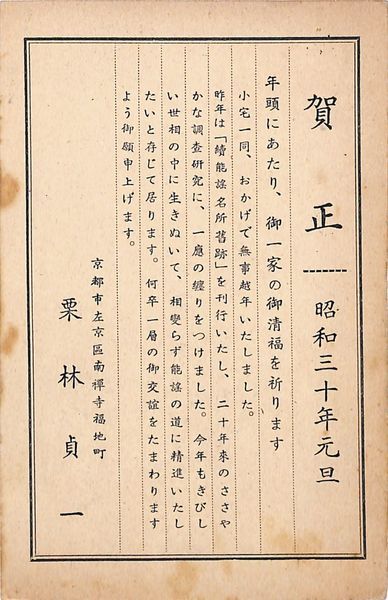 賀正 昭和三十年元旦
年頭にあたり、御一家の御清福を祈ります
小宅一同、おかげで無事越年いたしました。
昨年は「續能謡名所舊跡」を刊行いたし、二十年來のささや
かな調査研究に、一應の纏りをつけました。今年もきびし
い世相の中に生きぬいて、相變らず能謡の道に精進いたし
たいと存じて居ります。何卒一層の御交誼をたまわります
よう御願申上げます。
京都市左京區南禪寺福地町
栗林貞一